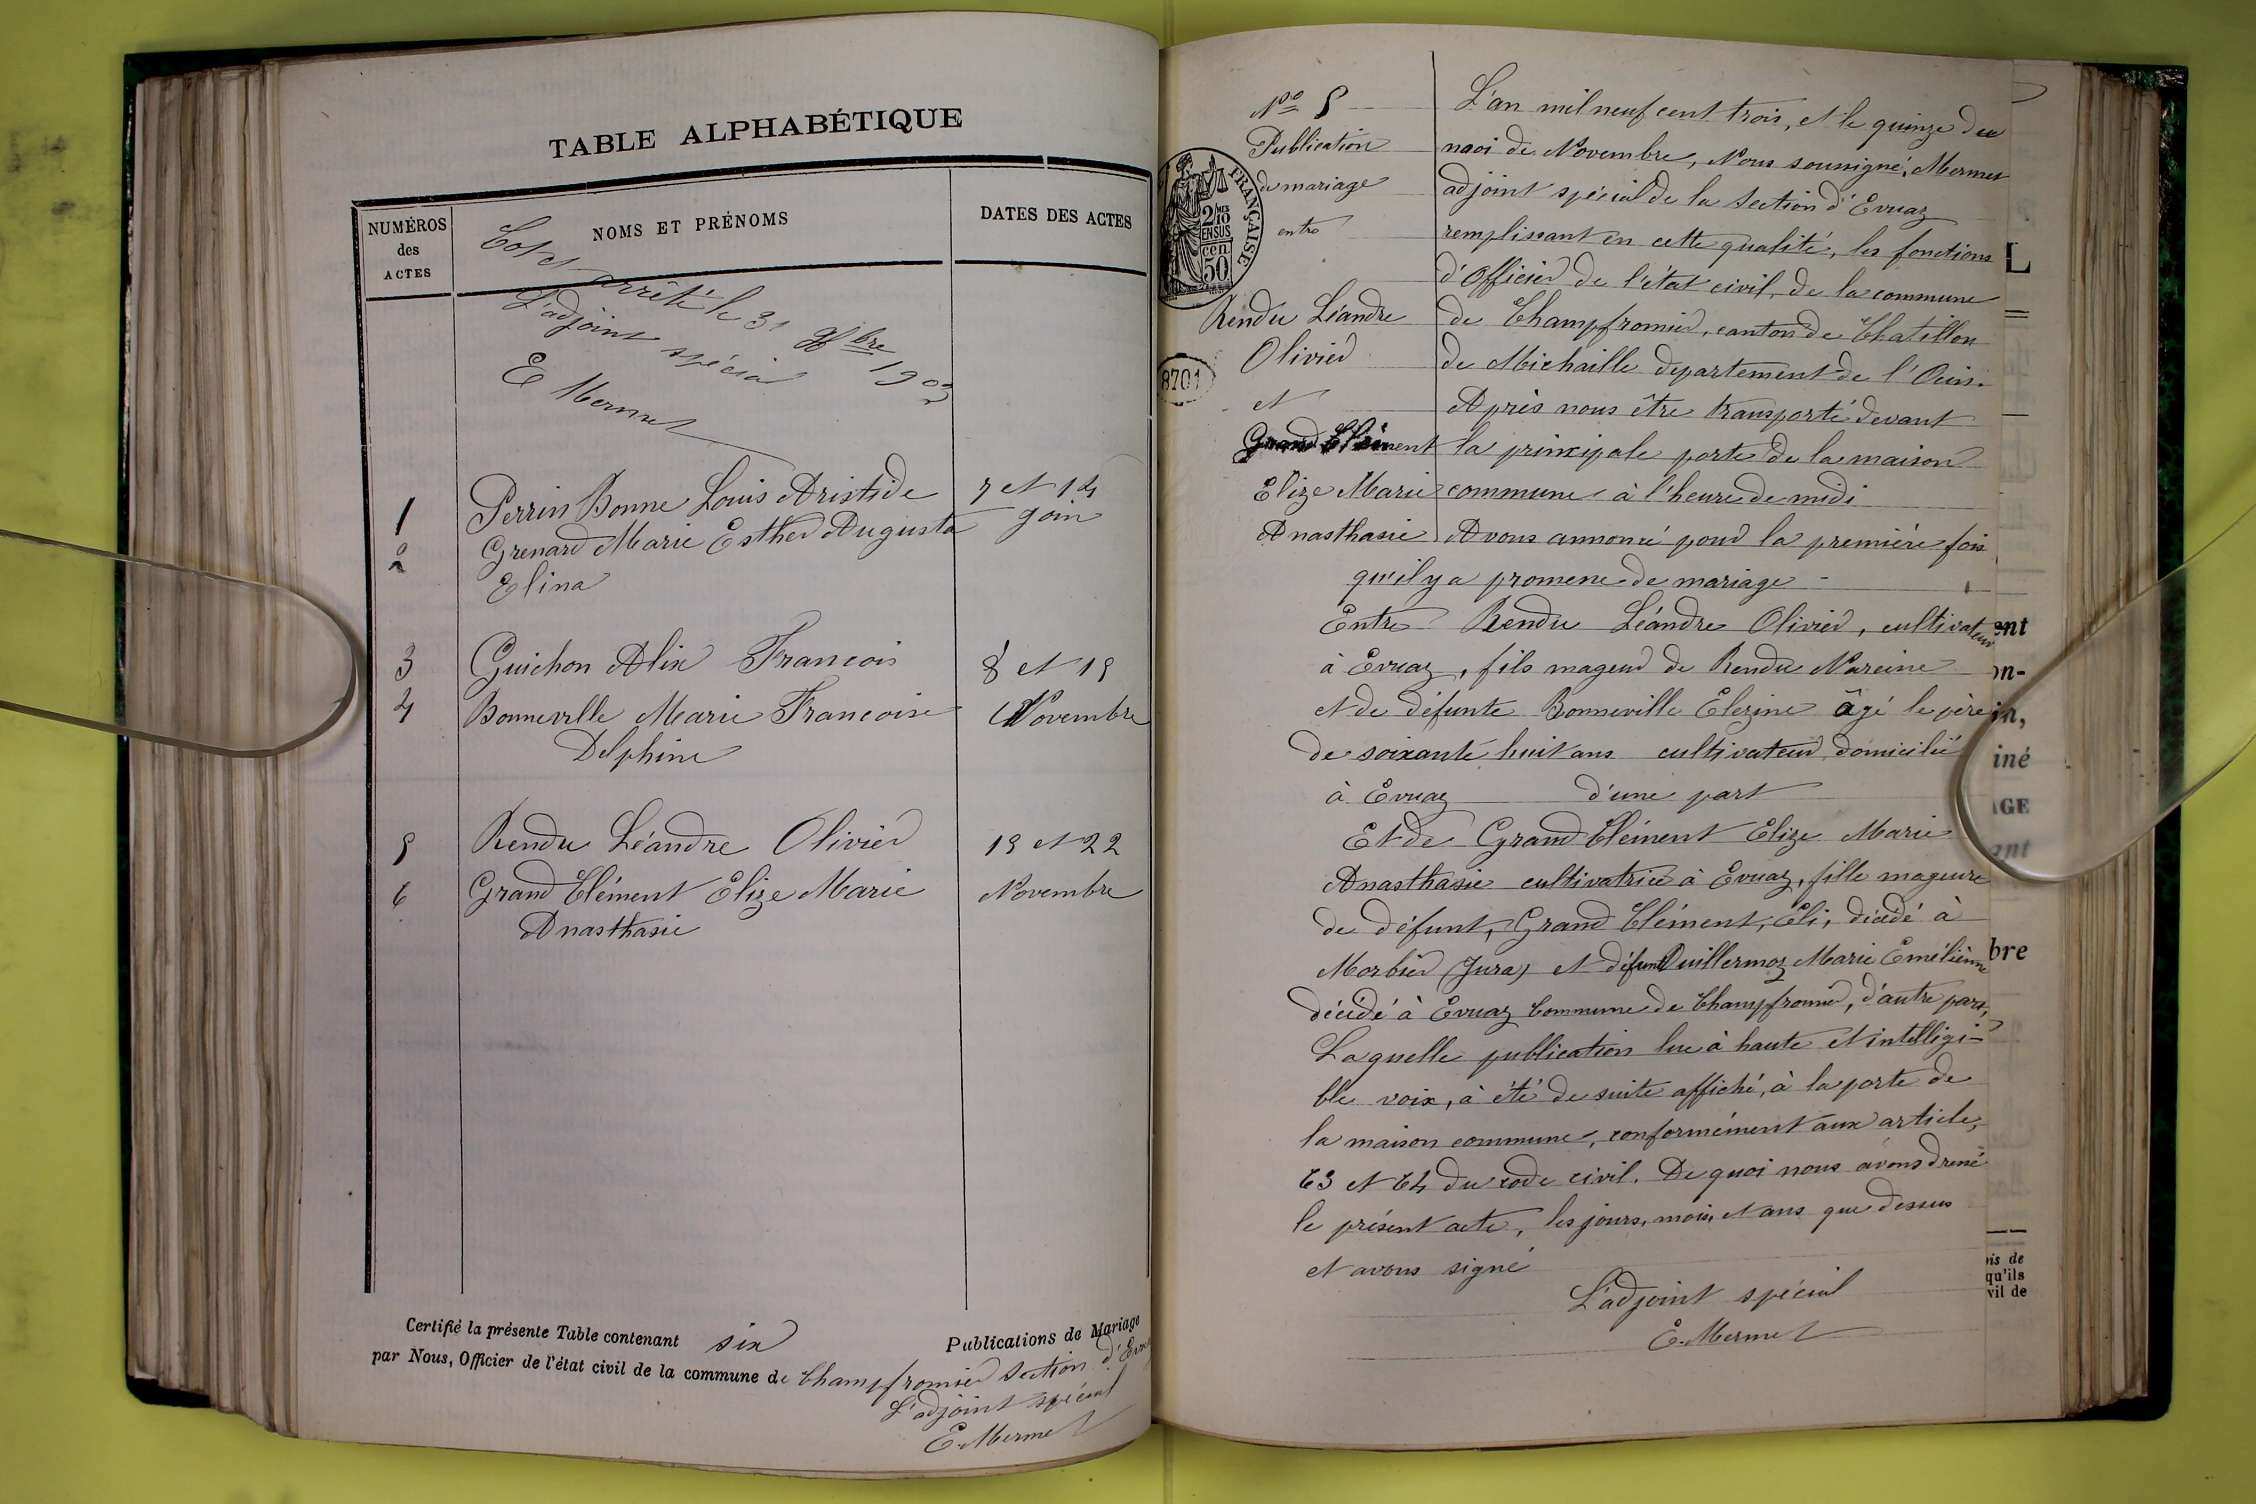 TABLE ALPHABÉTIQUE
NUMÉROS
des
ACTES
NOMS ET PRÉNOMS
DATES DES ACTES
arrêté le 31 Xbre 1903
L'adjoint spécial
E Mermet
1 Perrin Bonne Louis Aristide 7 et 14
2 Grenard Marie Esther Augusta Join
Elina
3 Guichon Alix Francois 8 et 15
4 Bonneville Marie Francoise Novembre
Delphine
5 Rendu Léandre Olivier 15 et 22
6 Grand Clément Elize Marie Novembre
Anasthasie
Certifié la présente Table contenant six Publications de Mariage
par Nous, Officier de l'état civil de la commune de Champfromier Section d'Evuaz
L'adjoint spécial
E. Mermet
No 5
Publication
de mariage
entre
Rendu Léandre
Olivier
et
Grand Clément
Elize Marie
Anasthasie
FRANÇAISE
2/10
EN SUS
50 cen
8701
L'an mil neuf cent trois, et le quinze du
moi de Novembre, Nous soussigné, Mermet
adjoint spécial de la Section d'Evuaz
remplissant en cette qualité, les fonctions
d'Officier de l'état civil, de la commune
de Champfromier, canton de Chatillon
de Michaille departement de l'Ain.
Après nous être transporté devant
la principale porte de la maison
commune à l'heure de midi
Avons annoncé pour la première fois
qu'il y a promene de mariage -
Entre Rendu Léandre Olivier, cultivateur
à Evuaz, fils mageur de Rendu Narcine
et de défunte Bonneville Elezine âgé le père
de soixante huit ans cultivateur domicilié
à Evuaz d'une part
Et de Grand Clément Elize Marie
Anasthasie cultivatrice à Evuaz, fille mageure
de défunt, Grand Clément, Eli, décédé à
Morbier (Jura) et défunt Duillermoz Marie Emélienne
décédé à Evuaz Commune de Champfromier, d'autre part,
Laquelle publication lue à haute et intelligi-
ble voix, à été de suite affiché, à la porte de
la maison commune, conformément aux article,
63 et 64 du code civil. De quoi nous avons drené
le présent acte, les jours, mois, et ans que dessus
et avons signé
L'adjoint spécial
E. Mermet
L
ent
on-
in,
iné
AGE
ant
bre
ois de
qu'ils
vil de